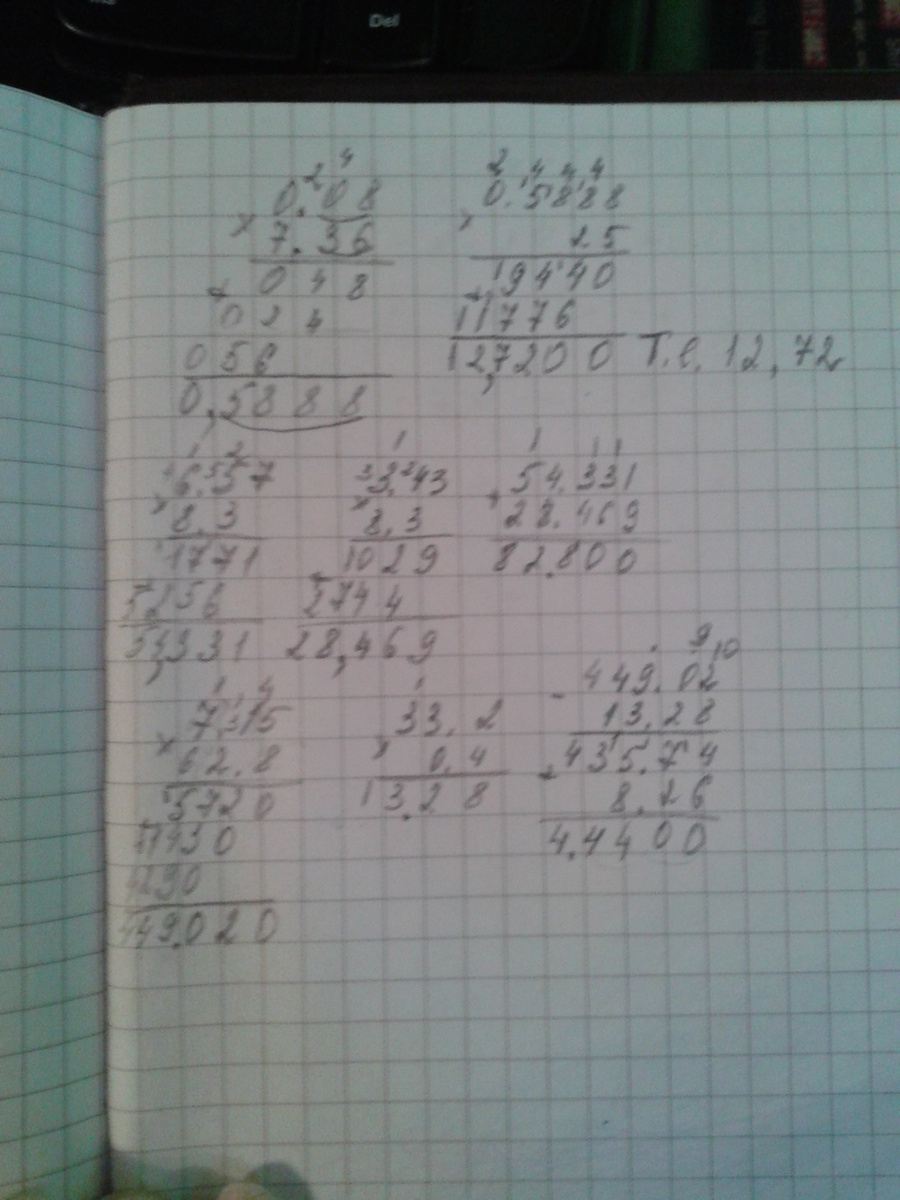 Del
0.08
× 7.36
048
+ 024
056
0,5888
0.5888
× 25
19440
+ 11776
12,7200 Т.е. 12,72
6.557
× 8.3
1771
5256
54,331
3.243
× 8.3
1029
+ 2744
28,469
54.331
+ 28.469
82.800
7.15
× 62.8
5720
+ 1430
4290
449.020
33.2
× 0.4
13.28
449.02
- 13.28
435.74
+ 8.26
4.4400